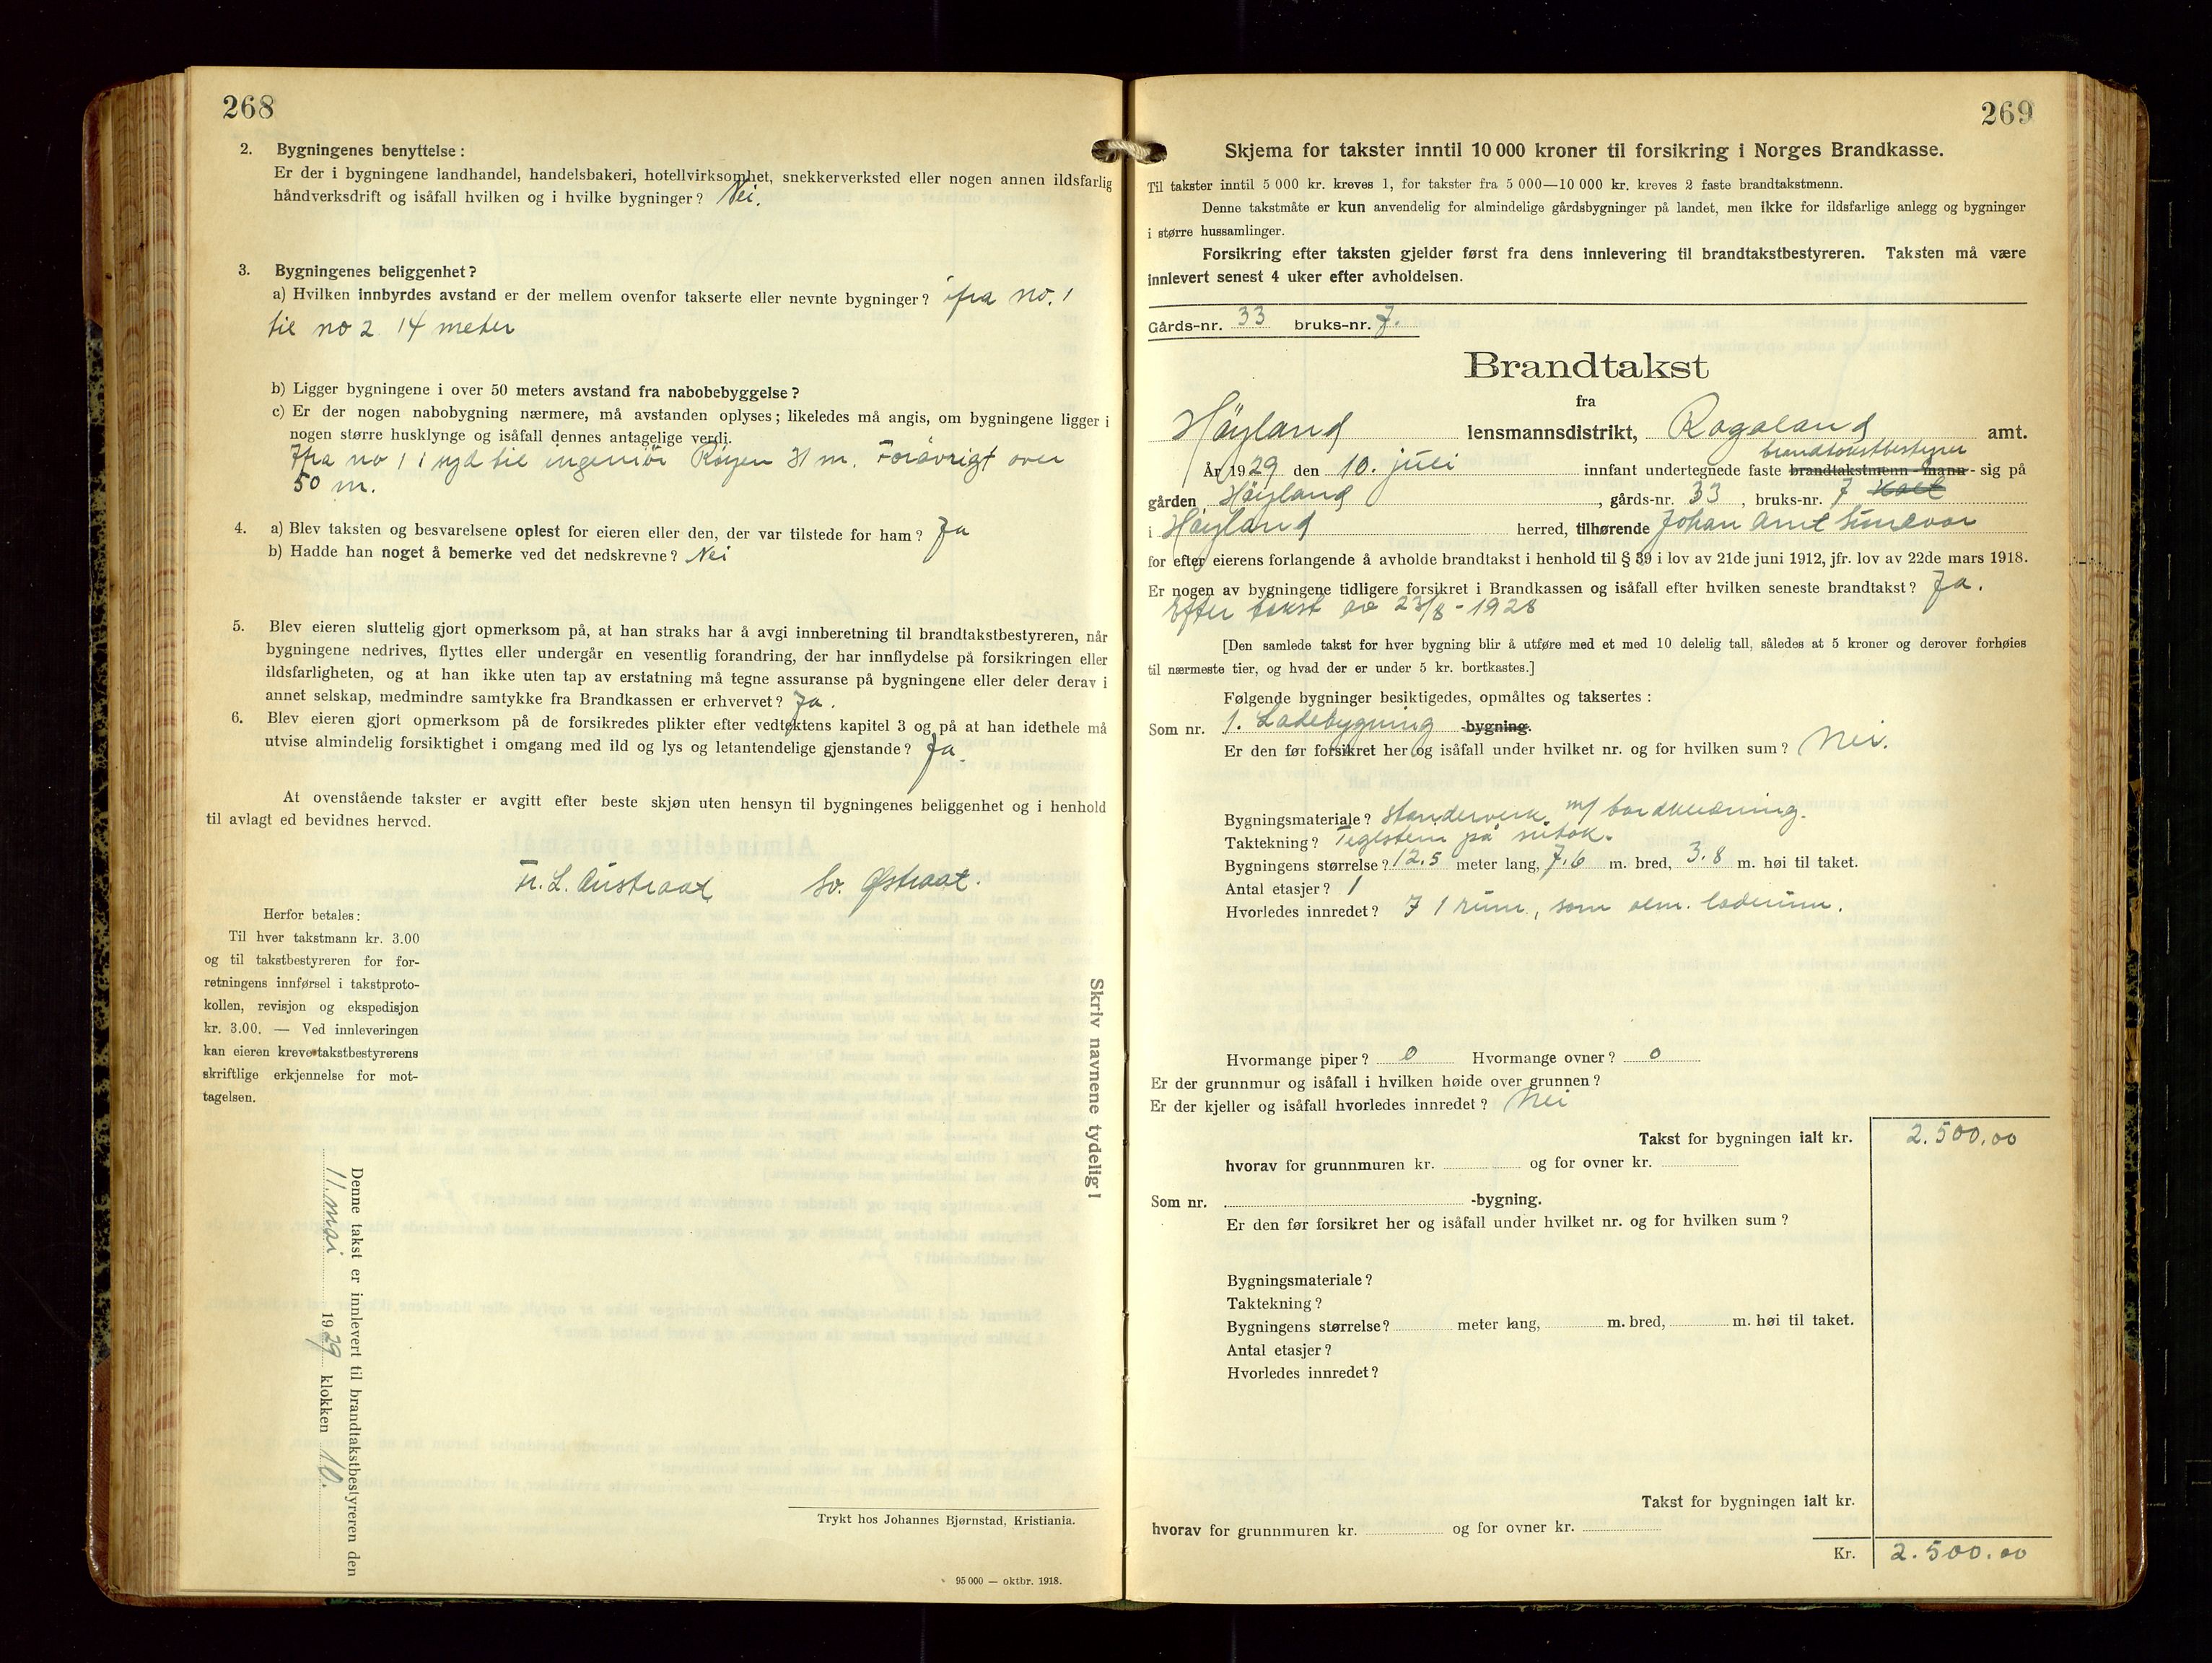 268
2. Bygningenes benyttelse:
Er der i bygningene landhandel, handelsbakeri, hotellvirksomhet, snekkerverksted eller nogen annen ildsfarlig
håndverksdrift og isåfall hvilken og i hvilke bygninger? Nei.
3. Bygningenes beliggenhet?
a) Hvilken innbyrdes avstand er der mellem ovenfor takserte eller nevnte bygninger? ifra no. 1
til no 2 14 meter
b) Ligger bygningene i over 50 meters avstand fra nabobebyggelse?
c) Er der nogen nabobygning nærmere, må avstanden oplyses; likeledes må angis, om bygningene ligger i
nogen større husklynge og isåfall dennes antagelige verdi.
Ifra no 1 i syd til ingeniör Röyen 31 m. Forøvrigt over
50 m.
4. a) Blev taksten og besvarelsene oplest for eieren eller den, der var tilstede for ham? Ja
b) Hadde han noget å bemerke ved det nedskrevne? Nei
5. Blev eieren sluttelig gjort opmerksom på, at han straks har å avgi innberetning til brandtakstbestyreren, når
bygningene nedrives, flyttes eller undergår en vesentlig forandring, der har innflydelse på forsikringen eller
ildsfarligheten, og at han ikke uten tap av erstatning må tegne assuranse på bygningene eller deler derav i
annet selskap, medmindre samtykke fra Brandkassen er erhvervet? Ja.
6. Blev eieren gjort opmerksom på de forsikredes plikter efter vedtektens kapitel 3 og på at han idethele må
utvise almindelig forsiktighet i omgang med ild og lys og letantendelige gjenstande? Ja
At ovenstående takster er avgitt efter beste skjøn uten hensyn til bygningenes beliggenhet og i henhold
til avlagt ed bevidnes herved.
L. Austraat Sv. Østraat.
Herfor betales:
Til hver takstmann kr. 3.00
og til takstbestyreren for for-
retningens innførsel i takstproto-
kollen, revisjon og ekspedisjon
kr. 3.00. — Ved innleveringen
kan eieren kreve takstbestyrerens
skriftlige erkjennelse for mot-
tagelsen.
Skriv navnene tydelig!
Denne takst er innlevert til brandtakstbestyreren den
11. mai 1929 klokken 10.
Trykt hos Johannes Bjørnstad, Kristiania.
95 000 — oktbr. 1918.
269
Skjema for takster inntil 10 000 kroner til forsikring i Norges Brandkasse.
Til takster inntil 5 000 kr. kreves 1, for takster fra 5 000—10 000 kr. kreves 2 faste brandtakstmenn.
Denne takstmåte er kun anvendelig for almindelige gårdsbygninger på landet, men ikke for ildsfarlige anlegg og bygninger
i større hussamlinger.
Forsikring efter taksten gjelder først fra dens innlevering til brandtakstbestyreren. Taksten må være
innlevert senest 4 uker efter avholdelsen.
Gårds-nr. 33 bruks-nr. 7.
Brandtakst
fra
Höyland lensmannsdistrikt, Rogaland amt.
brandtakstbestyrer
År 1929 den 10. juli innfant undertegnede faste brandtakstmenn-mann- sig på
gården Höyland, gårds-nr. 33, bruks-nr. 7 kalt
i Höyland herred, tilhørende Johan Arnt
for efter eierens forlangende å avholde brandtakst i henhold til § 39 i lov av 21de juni 1912, jfr. lov av 22de mars 1918.
Er nogen av bygningene tidligere forsikret i Brandkassen og isåfall efter hvilken seneste brandtakst? Ja.
Efter takst av 23/8-1928
[Den samlede takst for hver bygning blir å utføre med et med 10 delelig tall, således at 5 kroner og derover forhøies
til nærmeste tier, og hvad der er under 5 kr. bortkastes.]
Følgende bygninger besiktigedes, opmåltes og taksertes:
Som nr. 1. Ladebygning -bygning.
Er den før forsikret her og isåfall under hvilket nr. og for hvilken sum? Nei.
Bygningsmateriale? standerverk m/ bordklædning.
Taktekning? Teglsten på sutak.
Bygningens størrelse? 12.5 meter lang, 7.6 m. bred, 3.8 m. høi til taket.
Antal etasjer? 1
Hvorledes innredet? I 1 rum, som alm. laderum.
Hvormange piper? 0 Hvormange ovner? 0
Er der grunnmur og isåfall i hvilken høide over grunnen?
Er der kjeller og isåfall hvorledes innredet? Nei
Takst for bygningen ialt kr. 2.500.00
hvorav for grunnmuren kr. og for ovner kr.
Som nr. -bygning.
Er den før forsikret her og isåfall under hvilket nr. og for hvilken sum?
Bygningsmateriale?
Taktekning?
Bygningens størrelse? meter lang, m. bred, m. høi til taket.
Antal etasjer?
Hvorledes innredet?
Takst for bygningen ialt kr.
hvorav for grunnmuren kr. og for ovner kr.
Kr. 2.500.00